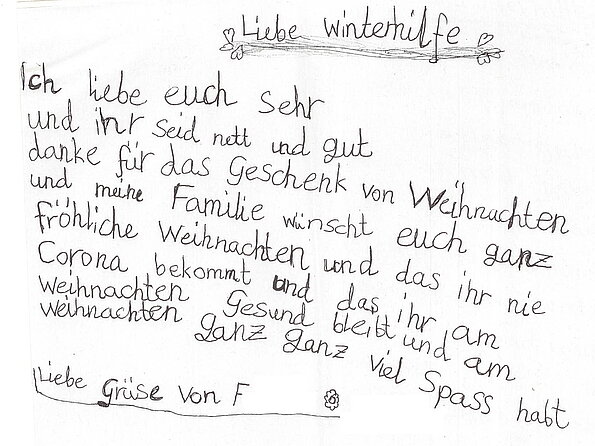 Liebe winterhilfe
Ich liebe euch sehr
und ihr seid nett und gut
danke für das Geschenk von Weihnachten
und meine Familie wünscht euch ganz
fröhliche Weihnachten und das ihr nie
Corona bekommt und das ihr am
weihnachten Gesund bleibt und am
weihnachten ganz ganz viel Spass habt
Liebe Grüse von F